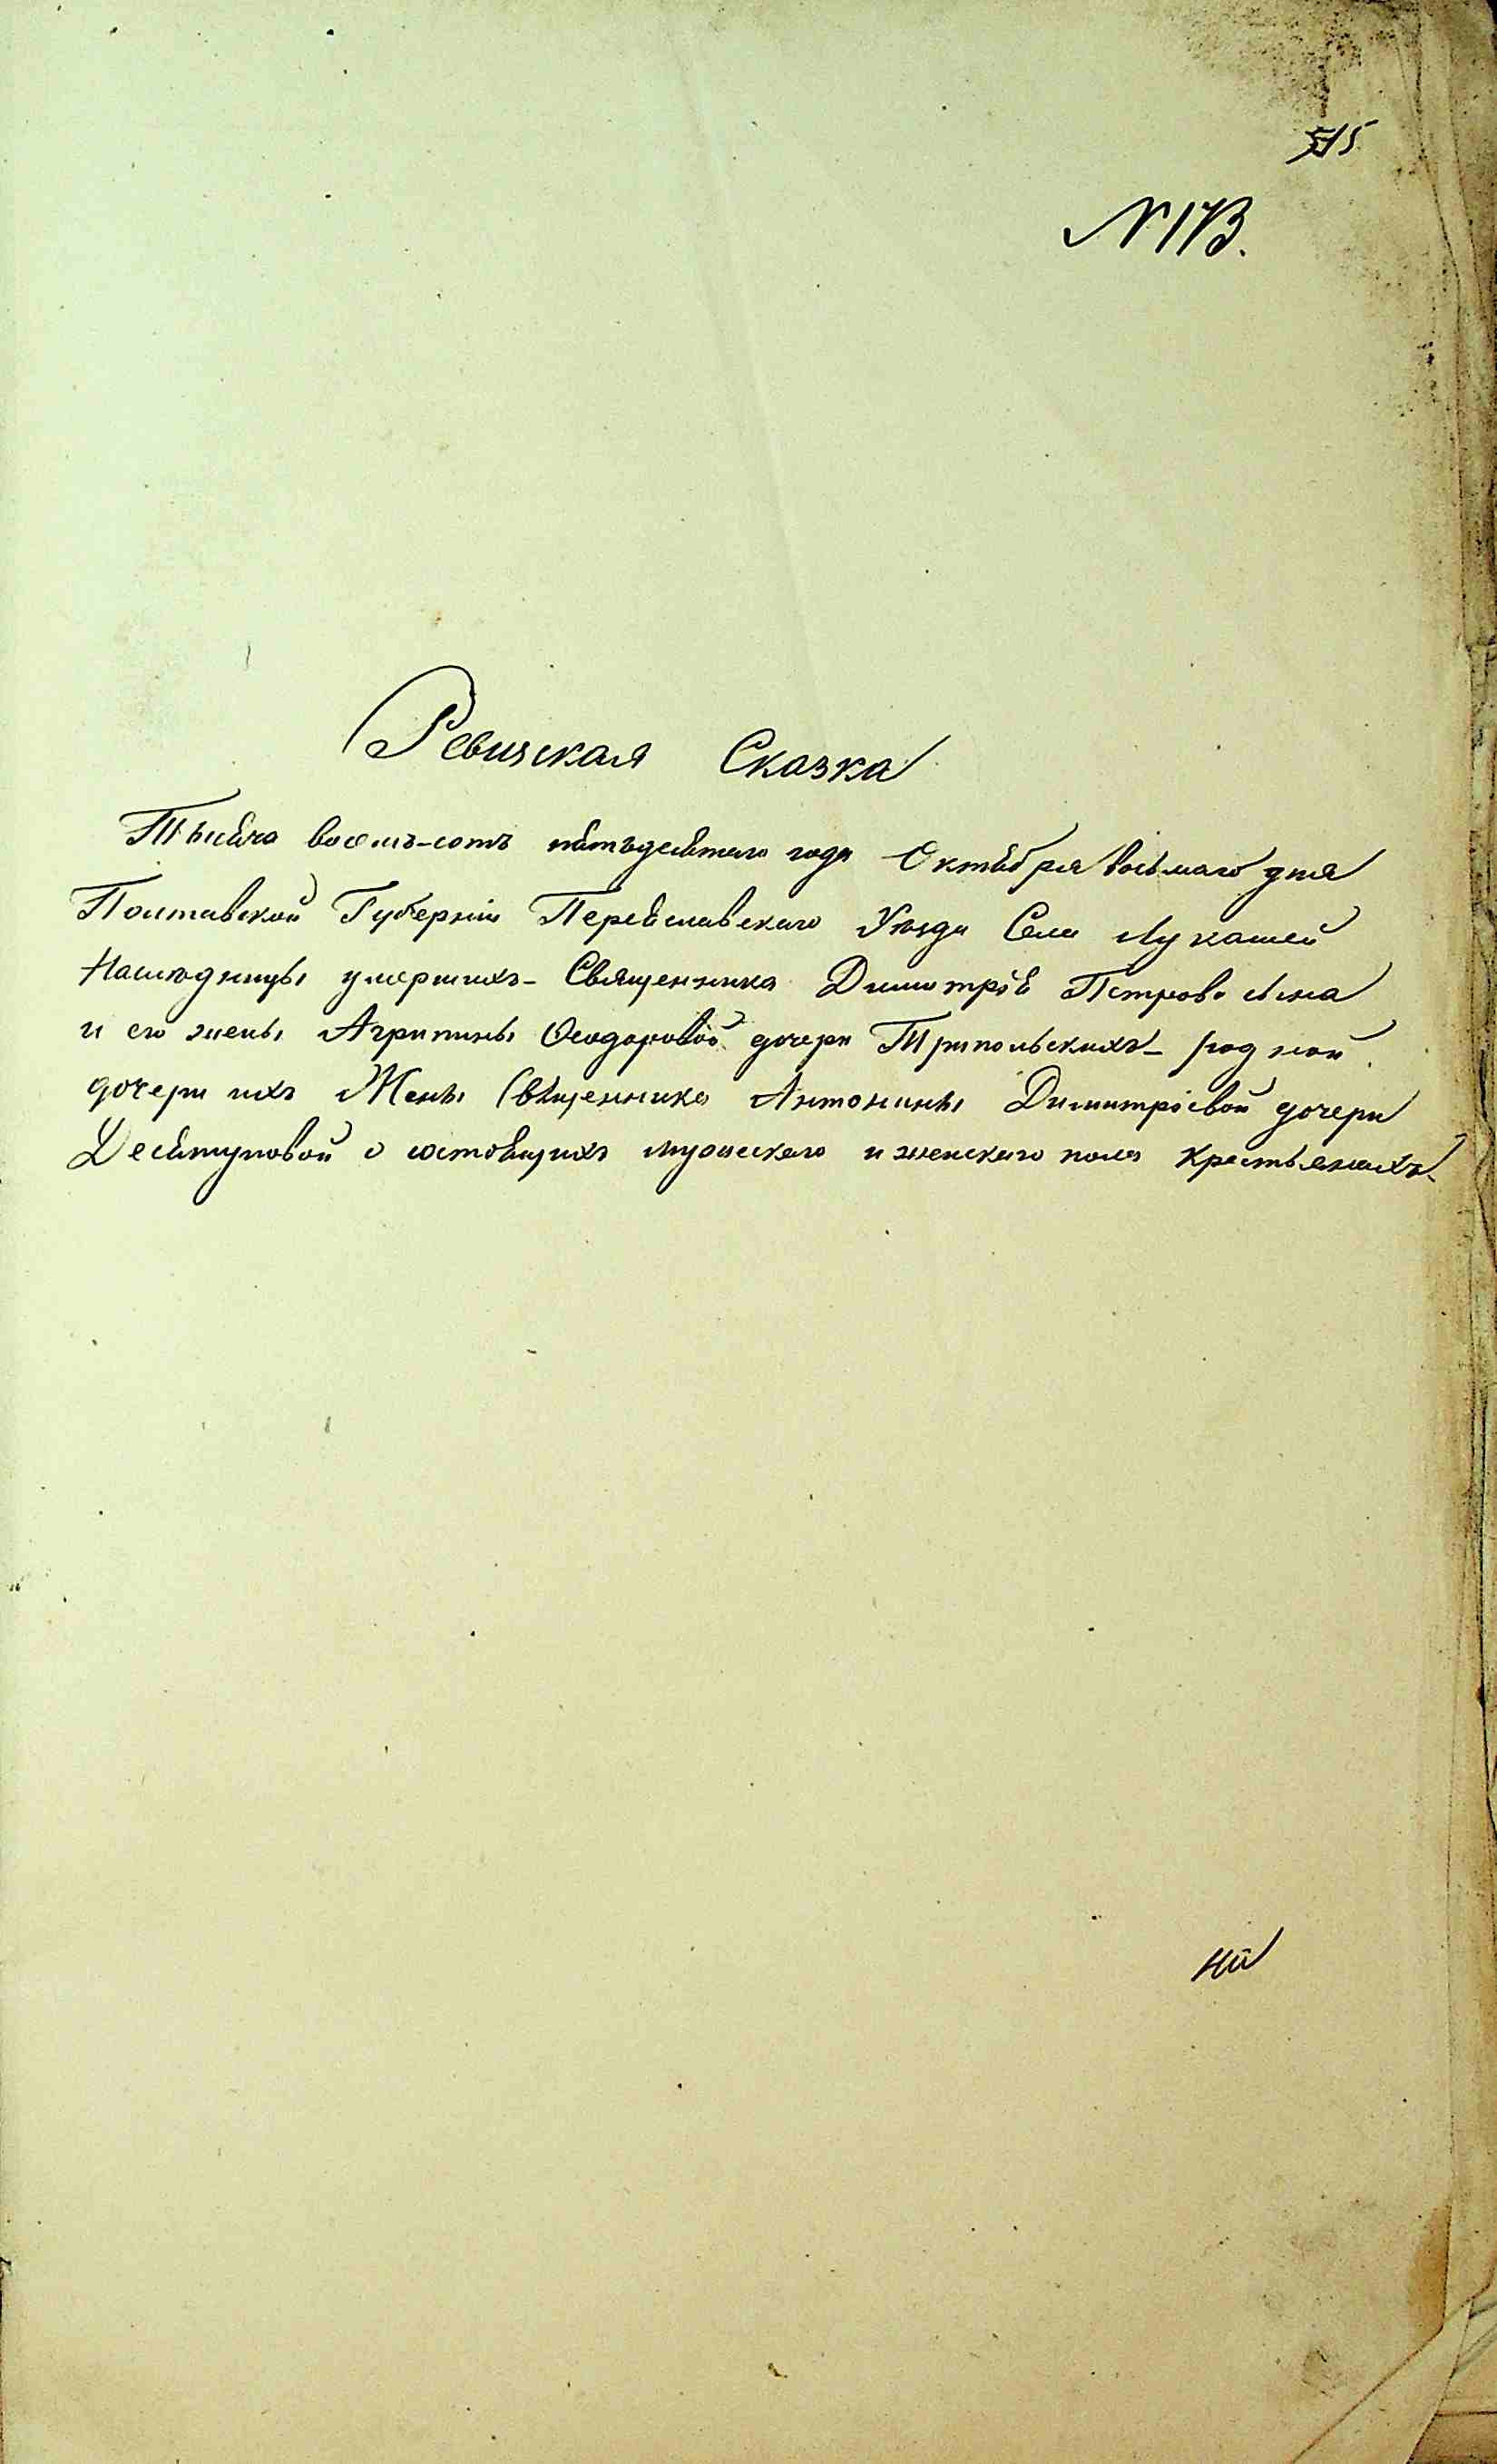 515
N 173.
Ревизская Сказка
Тысяча восемь-сотъ пятьдесятаго года Октября восьмаго дня
Полтавской Губерніи Переяславскаго Уѣзда Села Лукашей
Наслѣдницы умершихъ Священника Димитрія Петрова сына
и его жены Агрипины Феодоровой дочери Трипольскихъ родной
дочери ихъ Жены Священника Антонины Димитріевой дочери
Десятуповой о состоящихъ мужескаго и женскаго пола крестьянахъ